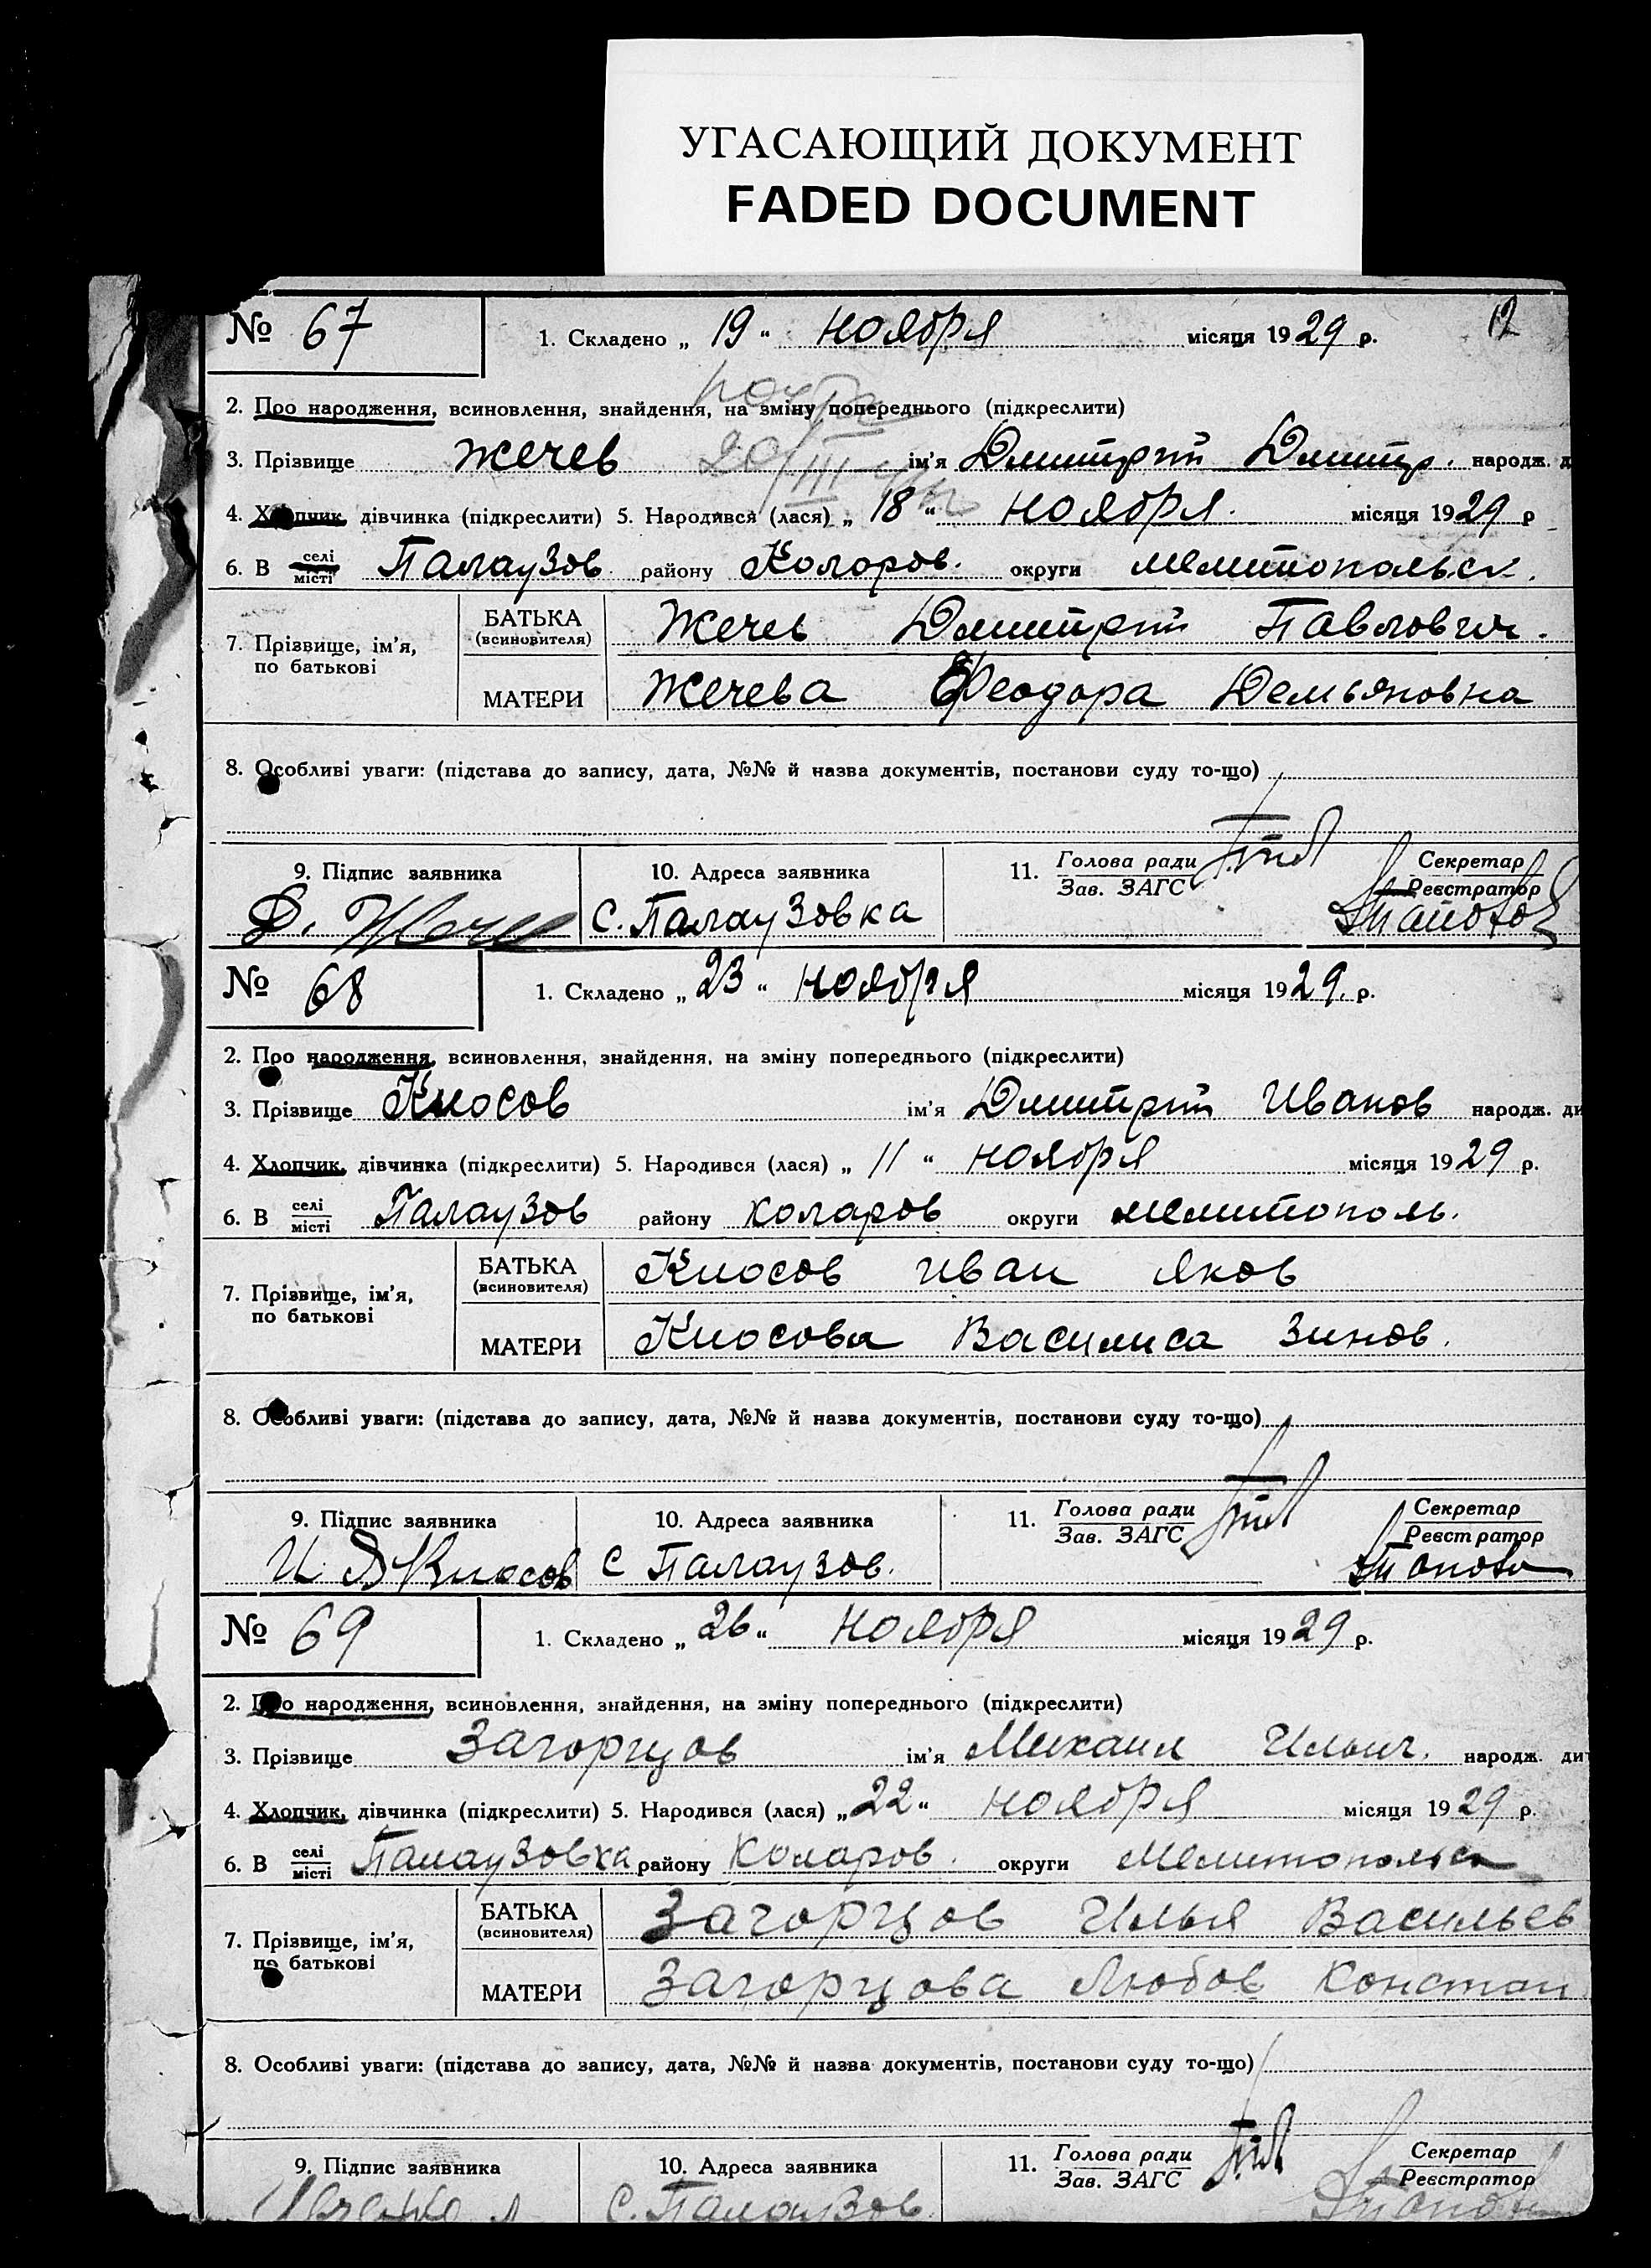 УГАСАЮЩИЙ ДОКУМЕНТ
FADED DOCUMENT
12
№ 67 1. Складено „ 19 “ ноября місяця 1929 р.
2. Про народження, всиновлення, знайдення, на зміну попереднього (підкреслити)
3. Прізвище Жечев ім'я Дмитрий Дмитр. народж. д
4. Хлопчик, дівчинка (підкреслити) 5. Народився (лася) „ 18 “ ноября. місяця 1929 р
6. В селі місті Палаузов. району Коларов. округи мелитопольск.
7. Прізвище, ім'я, по батькові
БАТЬКА (всиновителя) Жечев Дмитрий Павлович.
МАТЕРИ Жечева Феодора Демьяновна
8. Особливі уваги: (підстава до запису, дата, №№ й назва документів, постанови суду то-що)
9. Підпис заявника 10. Адреса заявника 11. Голова ради Зав. ЗАГС Секретар Реєстратор
Д. Жечев с. Палаузовка
№ 68 1. Складено „ 23 “ ноября місяця 1929. р.
2. Про народження, всиновлення, знайдення, на зміну попереднього (підкреслити)
3. Прізвище Кюсов ім'я Дмитрий Иванов народж. ди
4. Хлопчик, дівчинка (підкреслити) 5. Народився (лася) „ 11 “ ноября місяця 1929 р.
6. В селі місті Палаузов району коларов округи мелитополь.
7. Прізвище, ім'я, по батькові
БАТЬКА (всиновителя) Кюсов Иван Яков
МАТЕРИ Кюсова Василиса Зинов.
8. Особливі уваги: (підстава до запису, дата, №№ й назва документів, постанови суду то-що)
9. Підпис заявника 10. Адреса заявника 11. Голова ради Зав. ЗАГС Секретар Реєстратор
И Я Кюсов с Палаузов.
№ 69 1. Складено „ 26 “ ноября місяця 1929 р.
2. Про народження, всиновлення, знайдення, на зміну попереднього (підкреслити)
3. Прізвище Загорцов ім'я Михаил Ильич. народж. ди
4. Хлопчик, дівчинка (підкреслити) 5. Народився (лася) „ 22 “ ноября місяця 1929 р.
6. В селі місті Палаузовка району Коларов. округи Мелитопольск
7. Прізвище, ім'я, по батькові
БАТЬКА (всиновителя) Загорцов Илья Васильев
МАТЕРИ Загорцова Любов Констан
8. Особливі уваги: (підстава до запису, дата, №№ й назва документів, постанови суду то-що)
9. Підпис заявника 10. Адреса заявника 11. Голова ради Зав. ЗАГС Секретар Реєстратор
с. Палаузов.